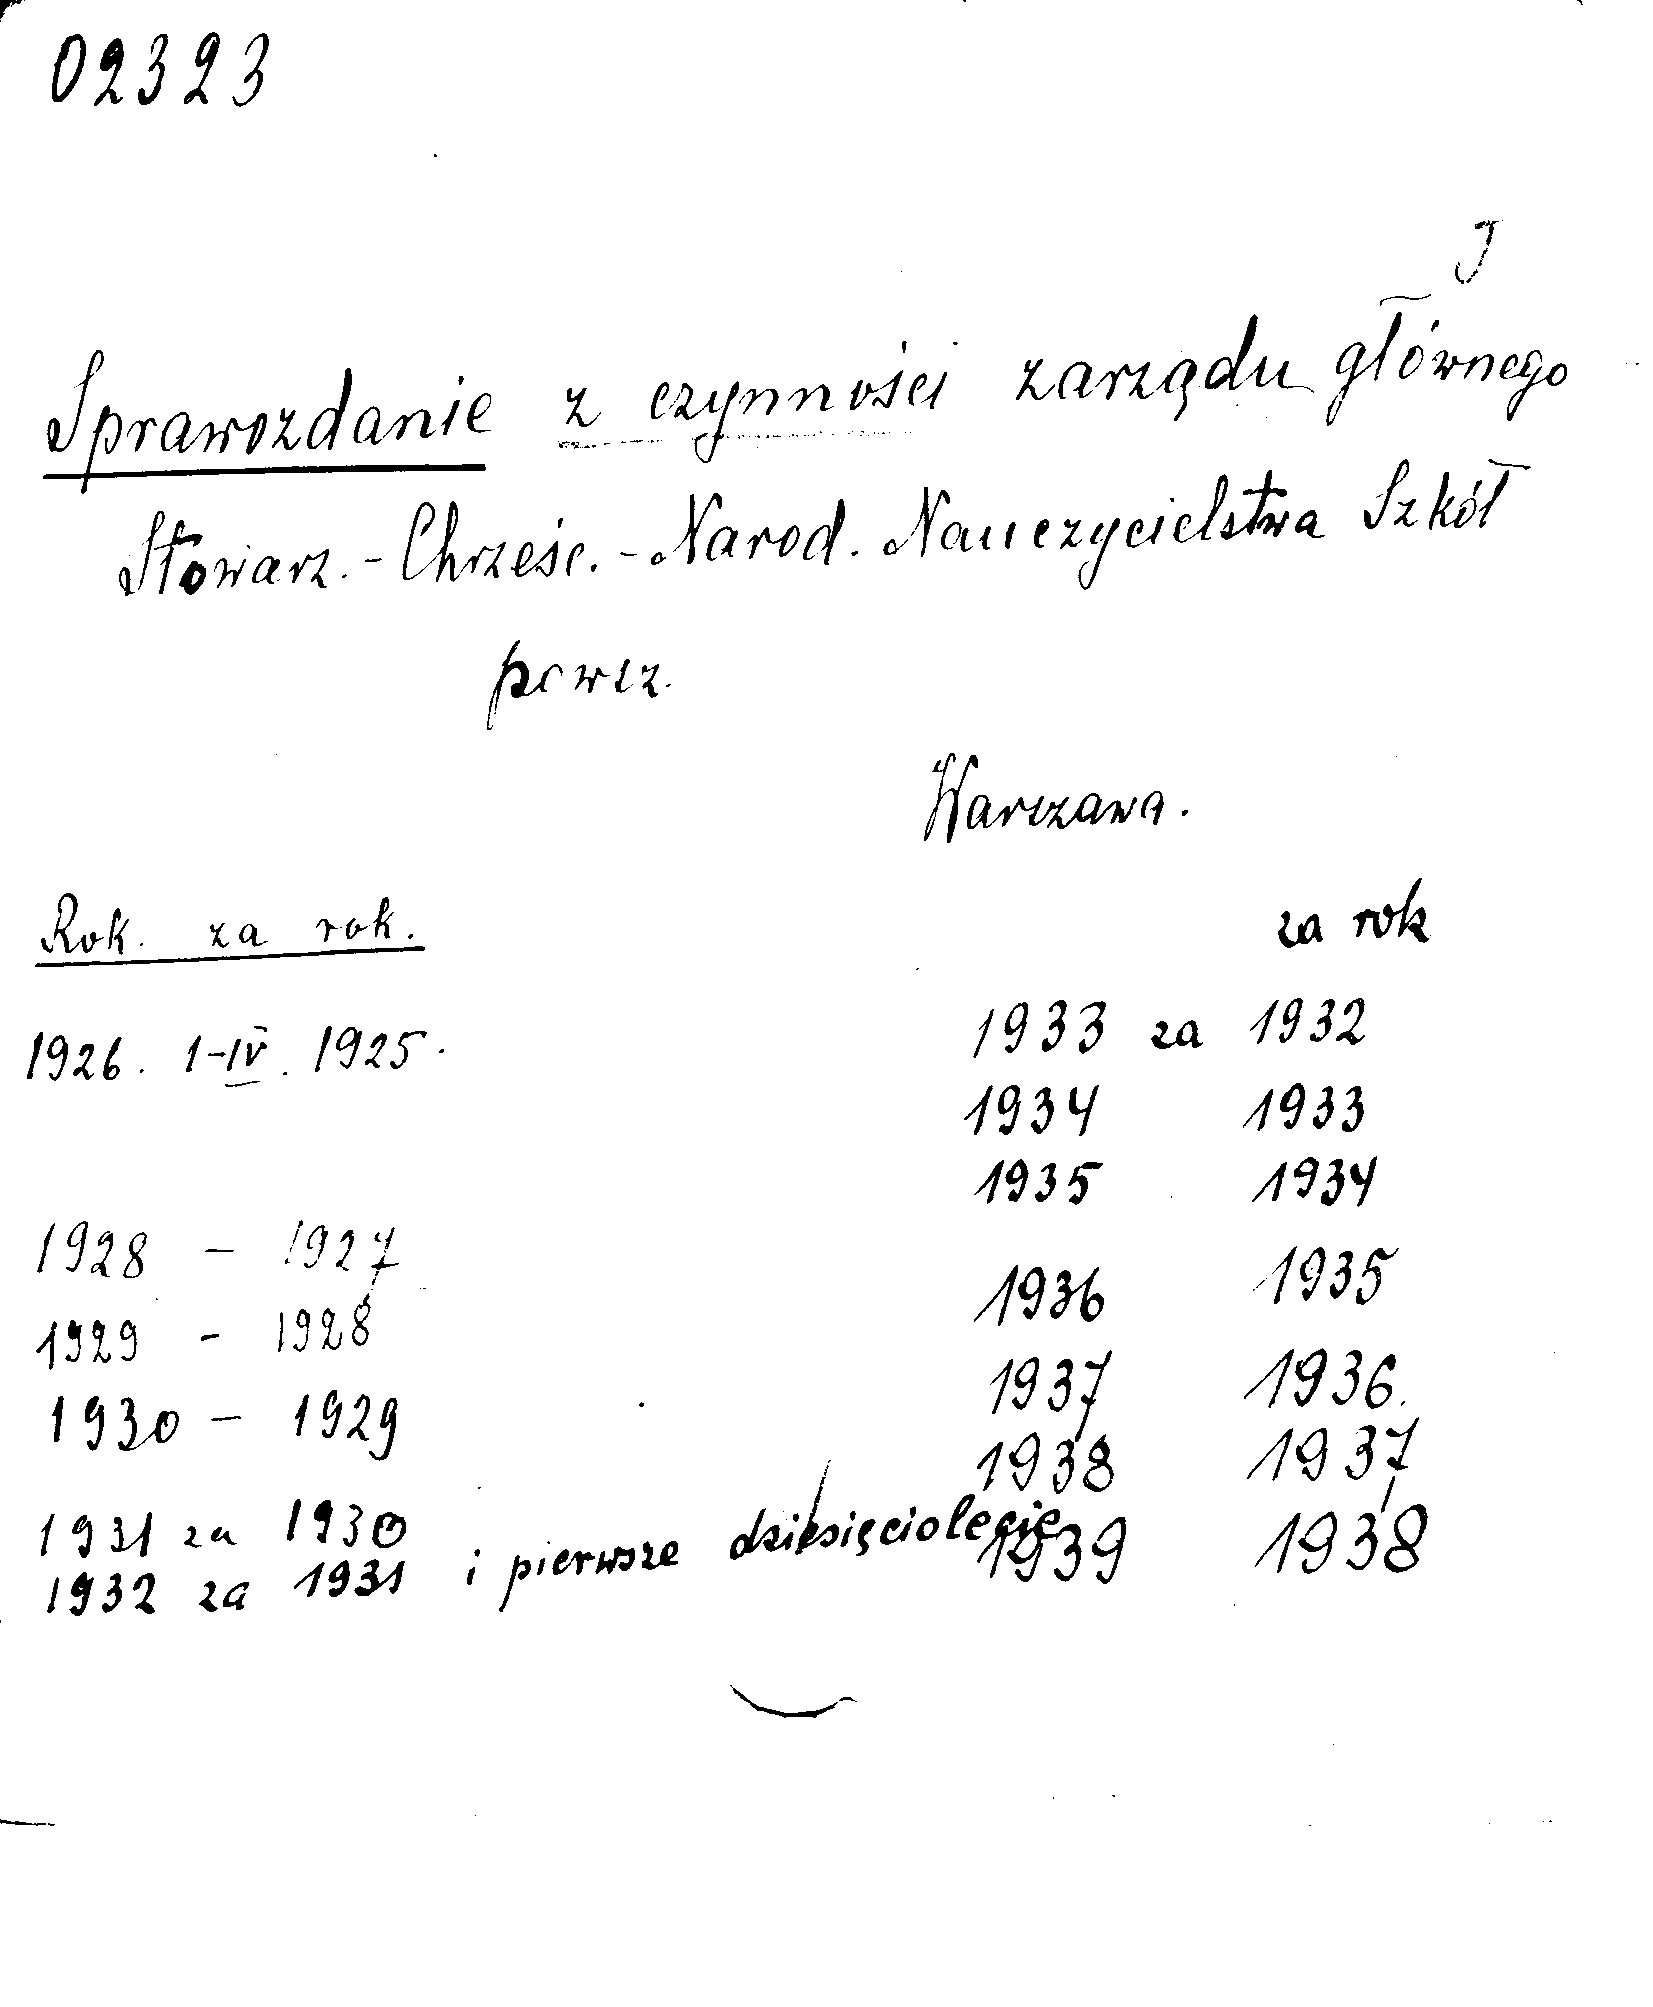 02323
J
Sprawozdanie z czynności zarządu głównego
Stowarz.-Chrześc.-Narod. Nauczycielstwa Szkół
powsz.
Warszawa.
Rok. za rok.
1926. 1-IV. 1925.
1928 - 1927
1929 - 1928
1930 - 1929
1931 za 1930
1932 za 1931 i pierwsze dziesięciolecie
za rok
1933 za 1932
1934 1933
1935 1934
1936 1935
1937 1936.
1938 1937
1939 1938